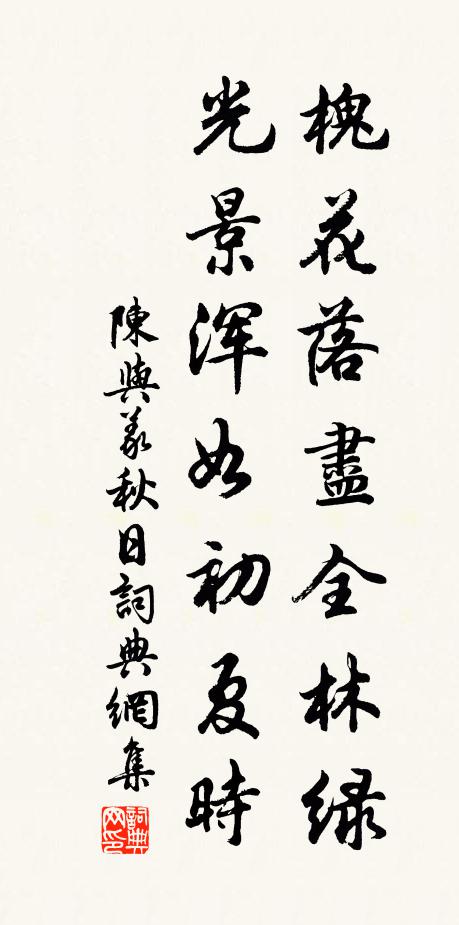 槐花落盡全林緑
光景渾如初夏時
陳與義秋日詞典網集
詞典网印